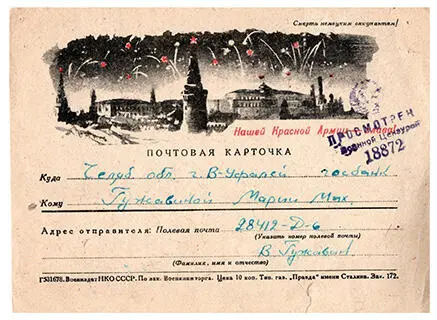 Смерть немецким оккупантам!
Нашей Красной Армии - слава!
ПРОСМОТРЕНО
Военной Цензурой
18872
ПОЧТОВАЯ КАРТОЧКА
Куда Челяб. обл. г. В-Уфалей госбанк
Кому Гужавиной Марии Мих.
Адрес отправителя: Полевая почта 28412-Д-6
(Указать номер полевой почты)
В. Гужавин
(Фамилия, имя и отчество)
Г531678. Воениздат НКО СССР. По зак. Военкниготорга. Цена 10 коп. Тип. газ. „Правда" имени Сталина. Зак. 172.